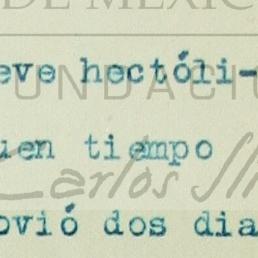 DE MÉXICO
eve hectóli-
FUNDACIÓ
uen tiempo
Carlos Slim
ovió dos dia